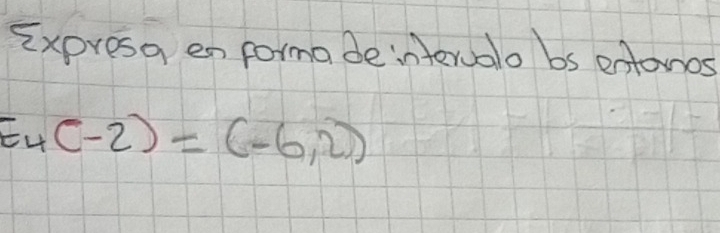 Expresa en forma de intervalo los entornos
E4(-2) = (-6,2)